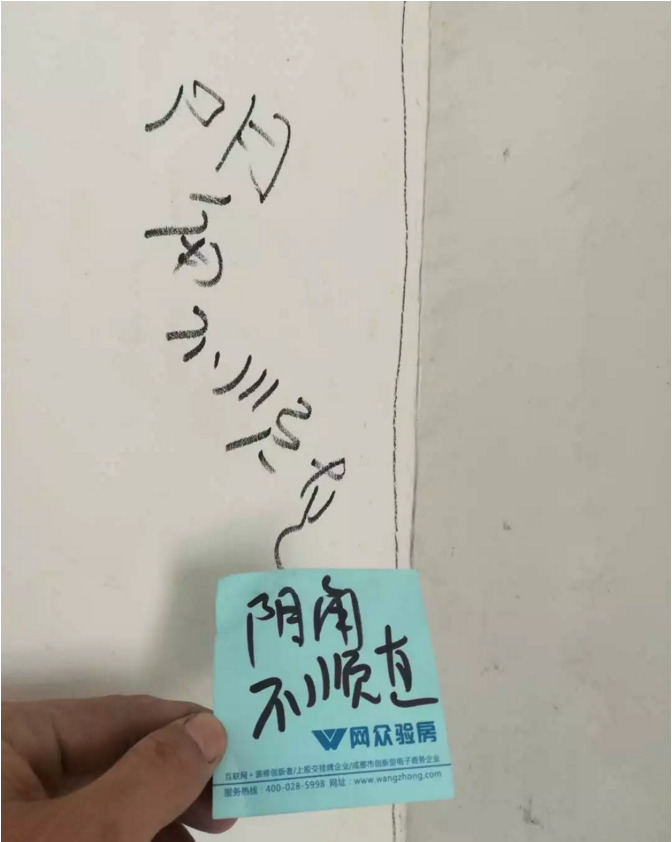 阴角不顺直
阴角
不顺直
网众验房
互联网+装修创新者/上股交挂牌企业/成都市创新型电子商务企业
服务热线：400-028-5998 网址：www.wangzhong.com